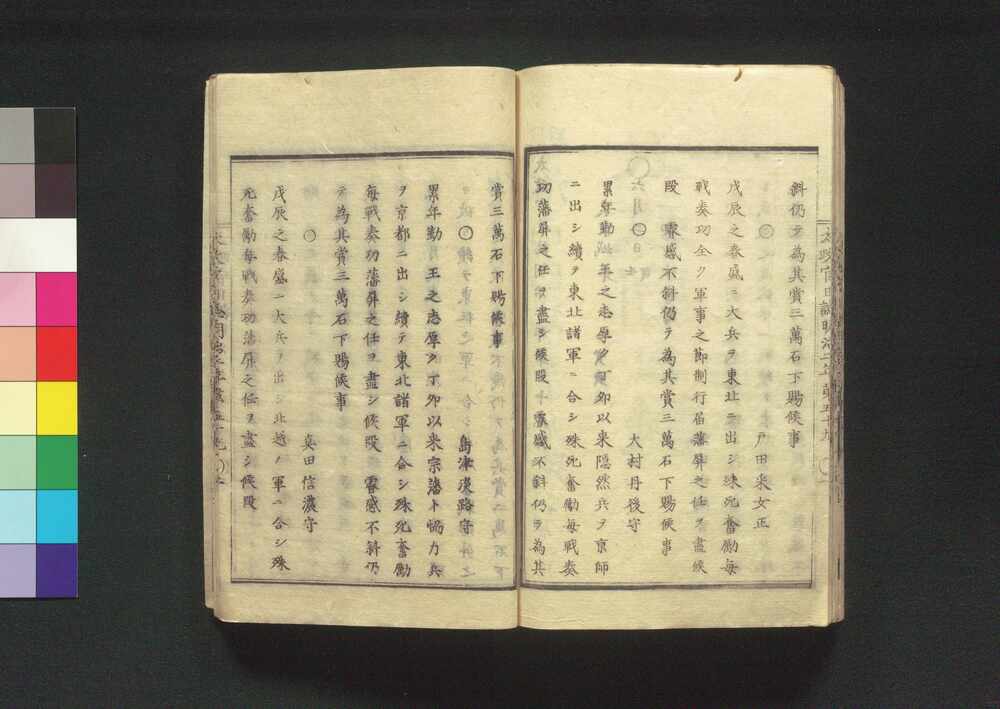 斜仍テ為其賞三萬石下賜候事
○
戸田采女正
戊辰之春盛ニ大兵ヲ東北ニ出シ殊死奮勵毎
戦奏功全ク軍事之節制行届藩屏之任ヲ盡候
段 叡感不斜仍テ為其賞三萬石下賜候事
○
大村丹後守
累年勤王之志厚ク丁卯以来隠然兵ヲ京師
ニ出シ續テ東北諸軍ニ合シ殊死奮勵毎戦奏
功藩屏之任ヲ盡シ候段 叡感不斜仍テ為其
賞三萬石下賜候事
○
島津淡路守
累年勤王之志厚ク丁卯以来宗藩ト恊力兵
ヲ京都ニ出シ續テ東北諸軍ニ合シ殊死奮勵
毎戦奏功藩屏之任ヲ盡シ候段 叡感不斜仍
テ為其賞三萬石下賜候事
○
真田信濃守
戊辰之春盛ニ大兵ヲ出シ北越ノ軍ニ合シ殊
死奮勵毎戦奏功藩屏之任ヲ盡シ候段